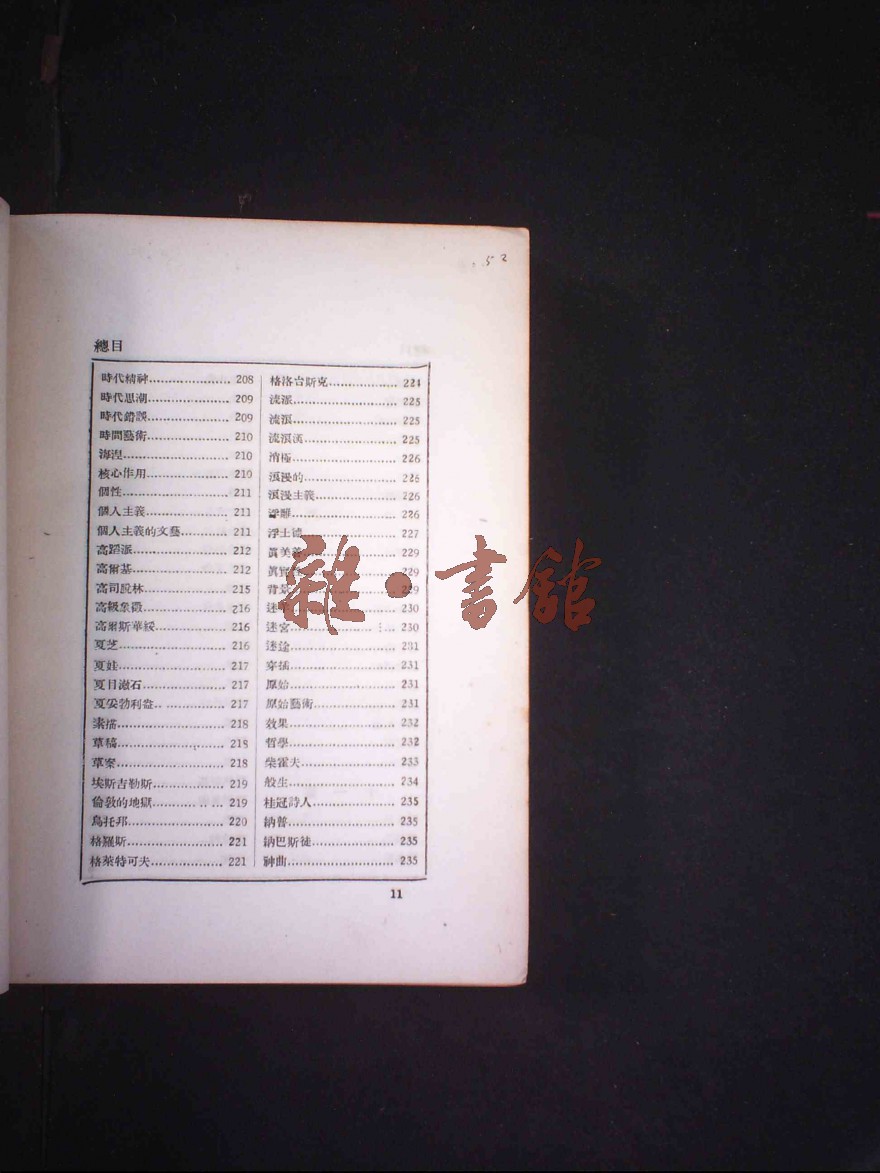 52
總目
時代精神........................ 208
時代思潮........................ 209
時代錯誤........................ 209
時間藝術........................ 210
海涅........................ 210
核心作用........................ 210
個性........................ 211
個人主義........................ 211
個人主義的文藝.............. 211
高蹈派........................ 212
高爾基........................ 212
高司脫林........................ 215
高級象徵........................ 216
高爾斯華綏........................ 216
夏芝........................ 216
夏娃........................ 217
夏目漱石........................ 217
夏妥勃利盎........................ 217
素描........................ 218
草稿........................ 218
草案........................ 218
埃斯吉勒斯........................ 219
倫敦的地獄........................ 219
烏托邦........................ 220
格羅斯........................ 221
格萊特可夫........................ 221
格洛台斯克.................... 224
流派........................ 225
流浪........................ 225
流浪漢........................ 225
消極........................ 226
浪漫的........................ 226
浪漫主義........................ 226
浮雕........................ 226
浮士德........................ 227
眞美善........................ 229
眞實........................ 229
背景........................ 229
迷........................ 230
迷宮........................ 230
迷途........................ 231
穿插........................ 231
原始........................ 231
原始藝術........................ 231
效果........................ 232
哲學........................ 232
柴霍夫........................ 233
般生........................ 234
桂冠詩人........................ 235
納普........................ 235
納巴斯徒........................ 235
神曲........................ 235
11
雜·書館